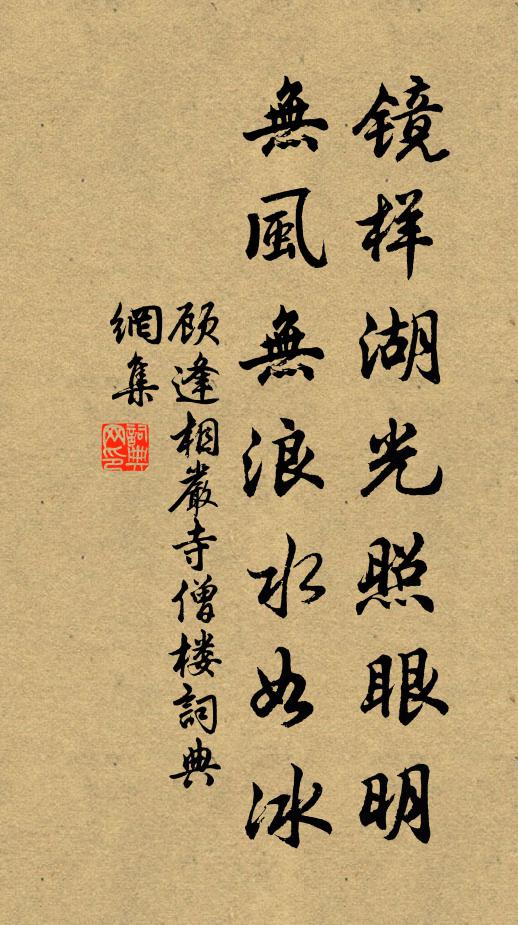 镜样湖光照眼明
無風無浪水如冰
顾逢相嚴寺僧楼詞典
網集
詞典网印